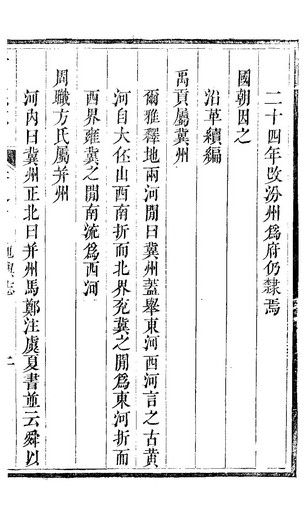 二十四年改汾州爲府仍隸焉
國朝因之
沿革續編
禹貢屬冀州
爾雅釋地兩河閒曰冀州蓋舉東河西河言之古黃
河自大伾山西南折而北界兖冀之閒爲東河折而
西界雍冀之閒南流爲西河
周職方氏屬并州
河內曰冀州正北曰并州馬鄭注虞夏書並云舜以